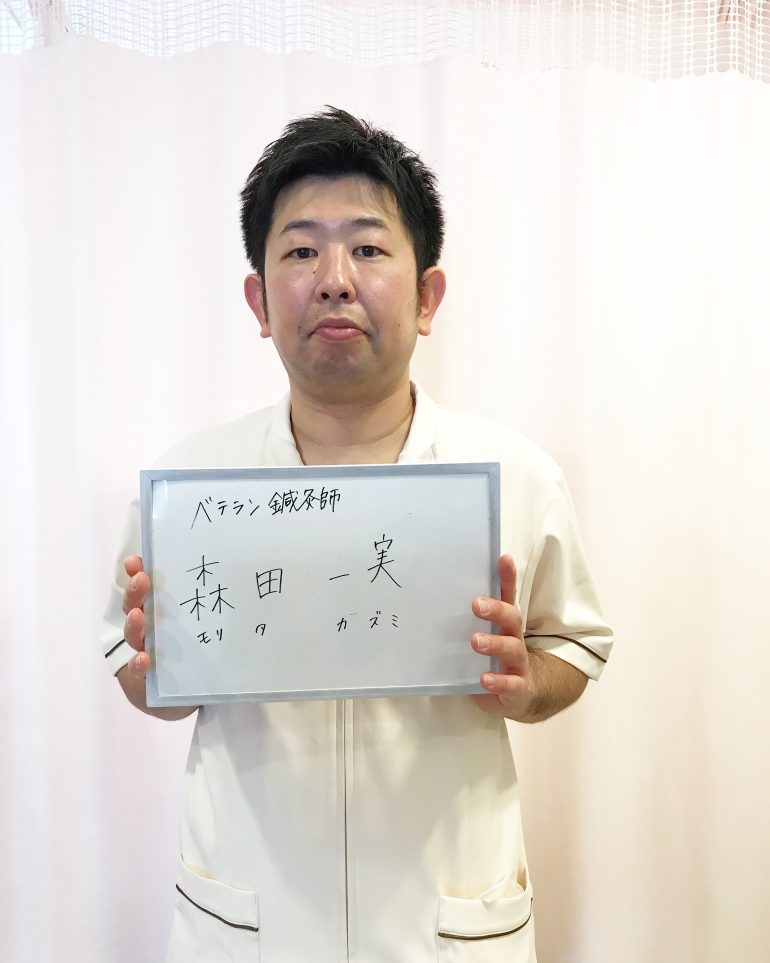 ベテラン鍼灸師
森田 一実
モリタ カズミ